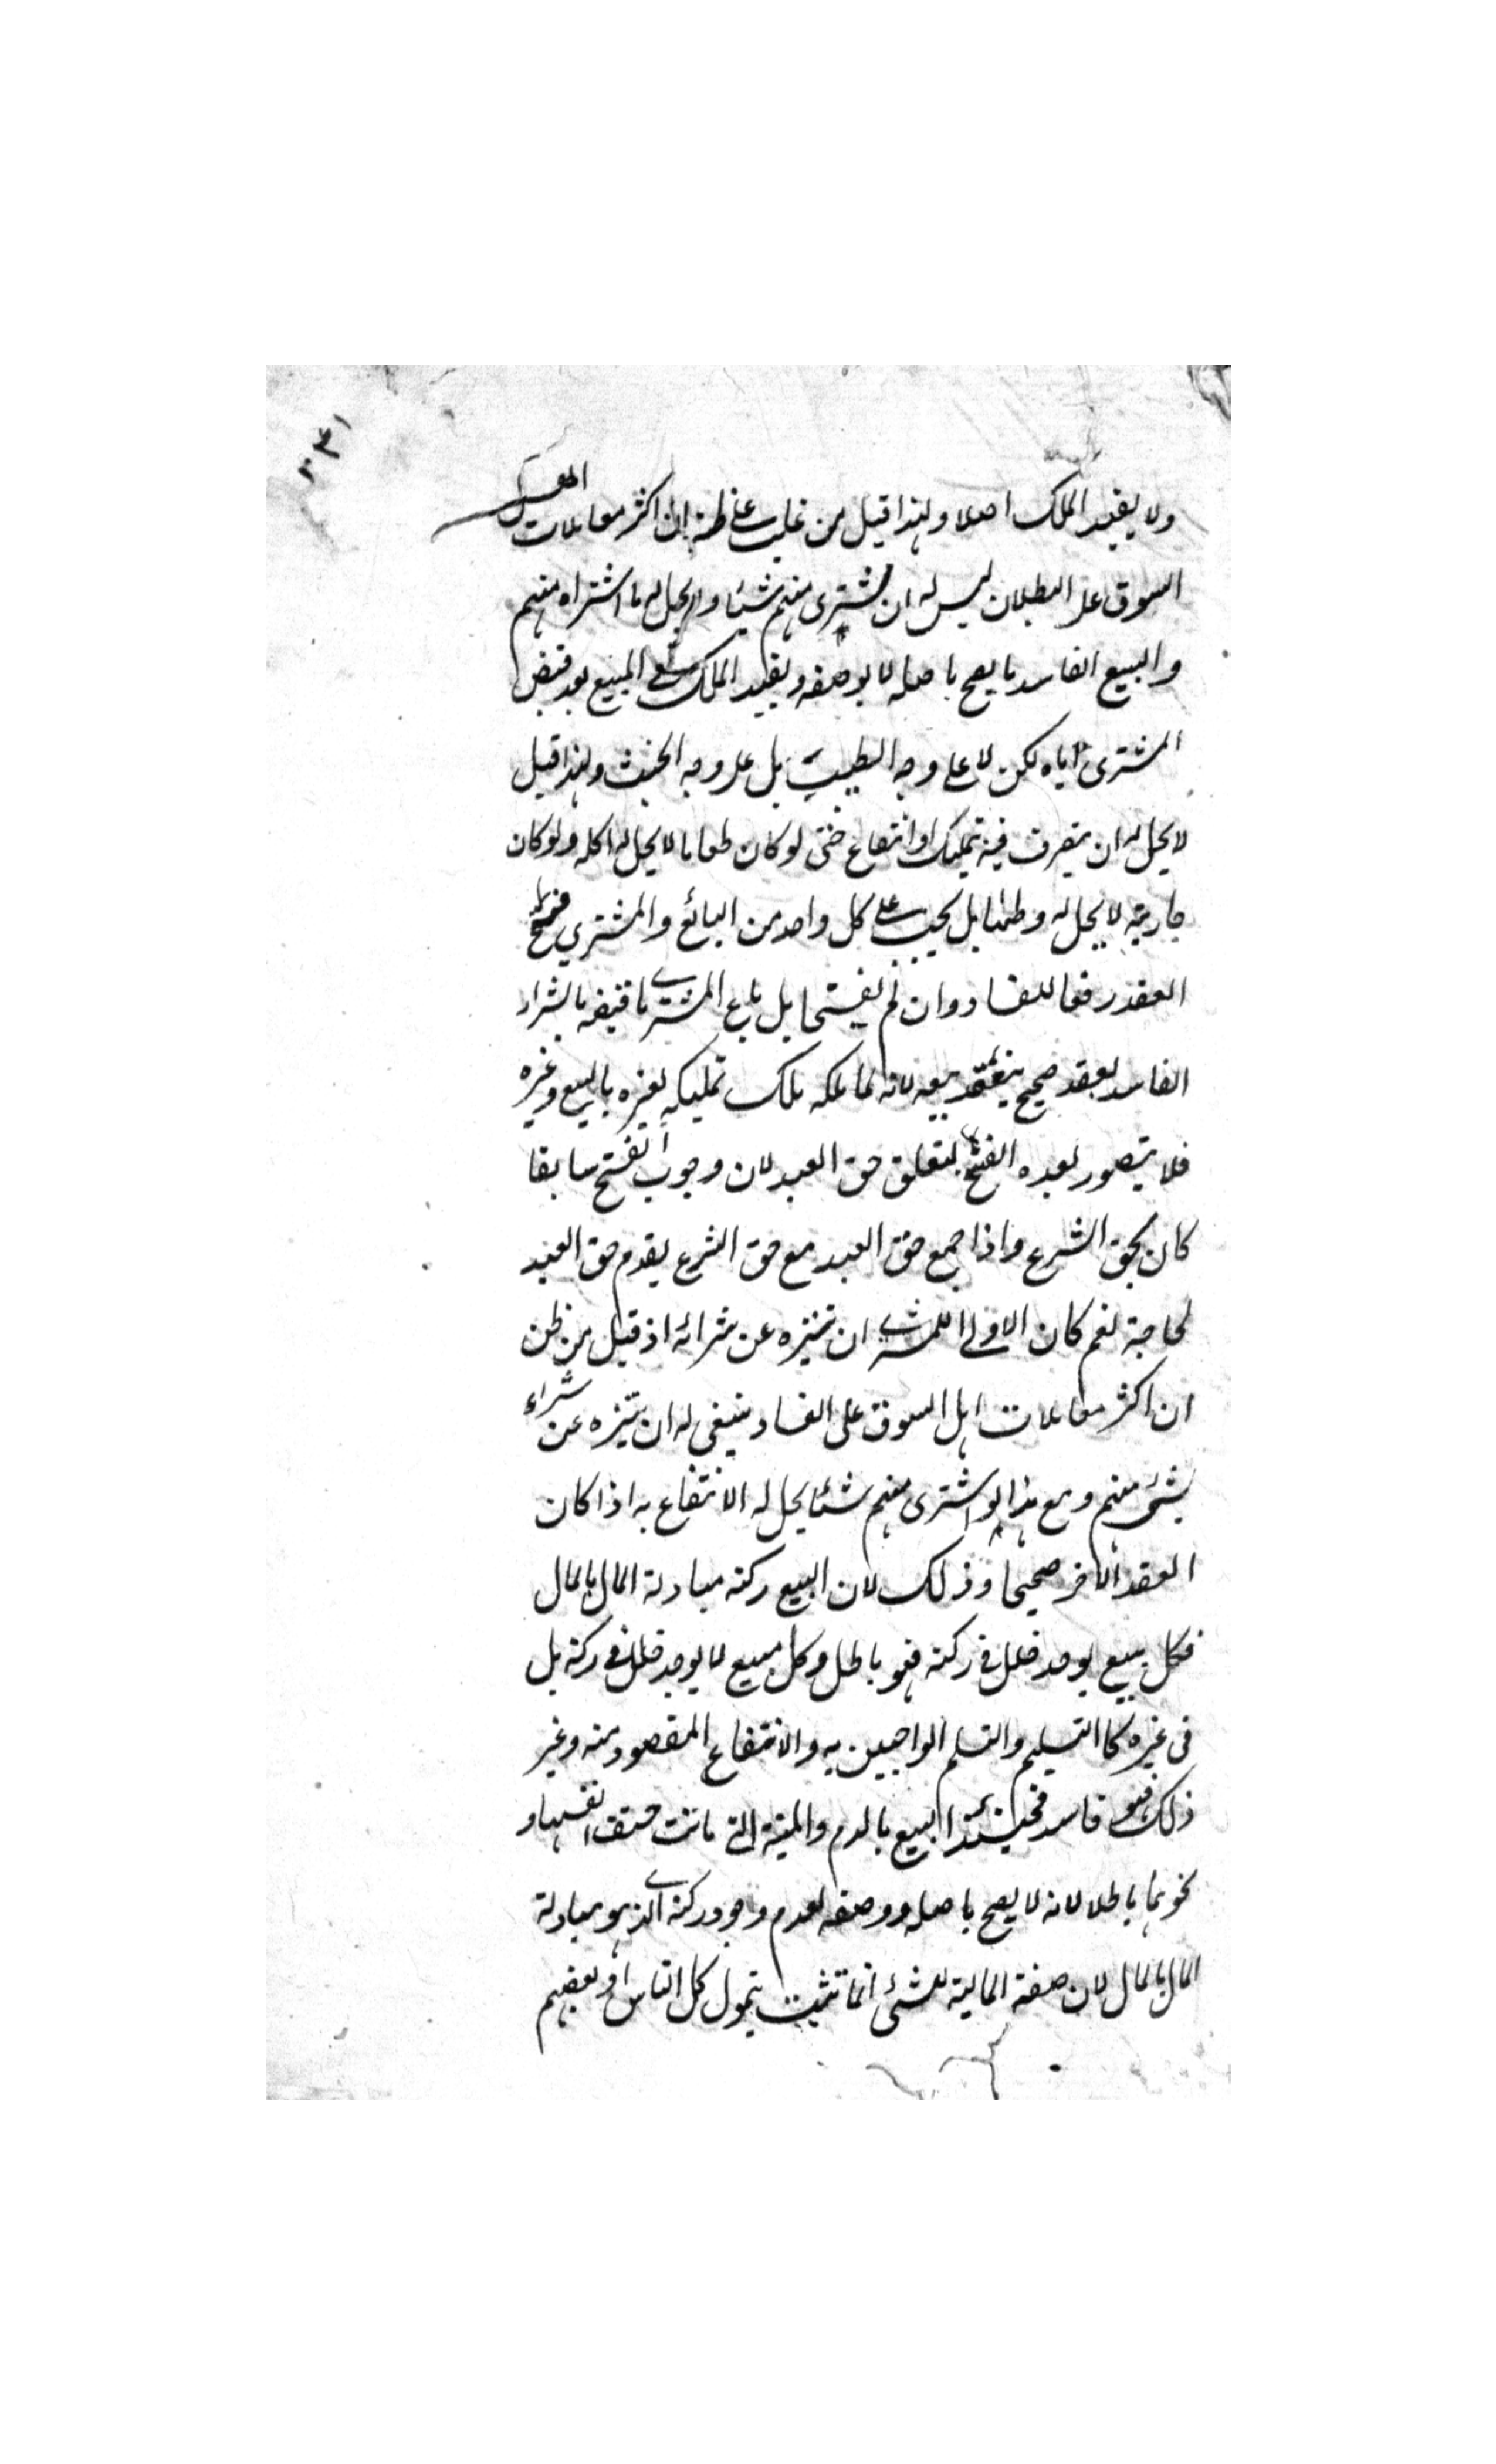 ولا يفيد الملك اصلا ولهذا قيل من غلب على ظنه ان اكثر معاملات اهل
السوق على البطلان ليس له ان يشترى منهم شيئا ولا يحل له ما اشتراه منهم
والبيع الفاسد ما يصح باصله لا بوصفه ويفيد الملك في المبيع بعد قبض
المشترى اياه لكن لا على وجه الطيب بل على وجه الخبث ولهذا قيل
لا يحل له ان يتصرف فيه تمليك او انتفاع حتى لو كان طعاما لا يحل له اكله ولو كان
جارية لا يحل له وطئها بل يجب على كل واحد من البائع والمشتري فسخ
العقد رفعا للفساد وان لم يفسخا بل باع المشترى ما قبضه بالشراء
الفاسد بعقد صحيح ينعقد بيعه لانه لما ملكه ملك تمليكه لغيره بالبيع وغيره
فلا يتصور بعده الفسخ لتعلق حق العبد لان وجوب الفسخ سابقا
كان بحق الشرع واذا جمع حق العبد مع حق الشرع يقدم حق العبد
لحاجة نعم كان الاولى للمشترى ان يتنزه عن شرائه اذ قيل من ظن
ان اكثر معاملات اهل السوق على الفساد ينبغى له ان يتنزه عن شراء
شيئ منهم ومع هذا لو اشترى منهم شئا يحل له الانتفاع به اذا كان
العقد الاخر صحيحا وذلك لان البيع ركنه مبادلة المال بالمال
فكل بيع يوجد خلل في ركنه فهو باطل وكل بيع لا يوجد خلل في ركنه بل
فى غيره كا التسليم والتسلم الواجبين به والانتفاع المقصود منه وغير
ذلك فهو فاسد فحينئذ البيع بالدم والميتة التى ماتت حتف انفسها و
نحوهما باطلا لانه لا يصح باصله ووصفه لعدم وجود ركنه الذى هو مبادلة
المال بالمال لان صفة المالية للشئ انما تثبت بتمول كل الناس او بعضهم